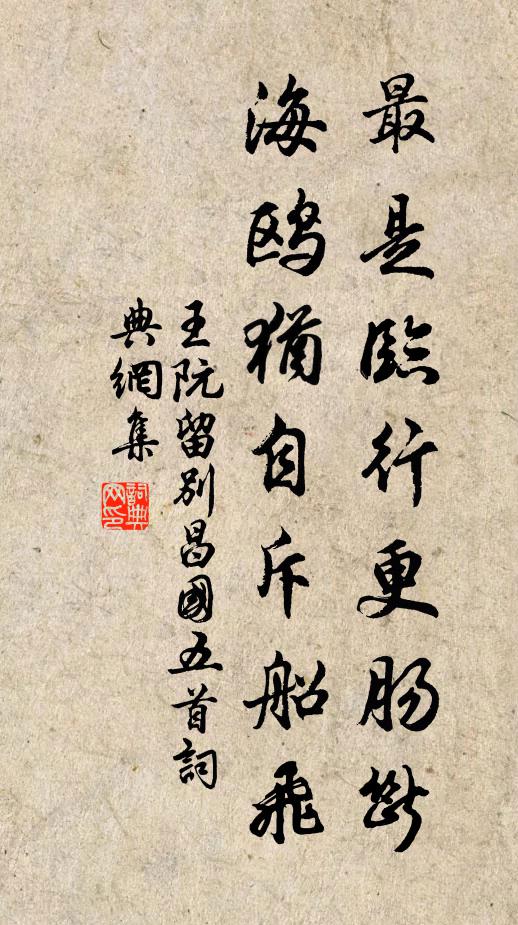 最是臨行更腸斷
海鷗猶自斥船飛
王阮留別昌國五首詞
典網集
詞典
网印